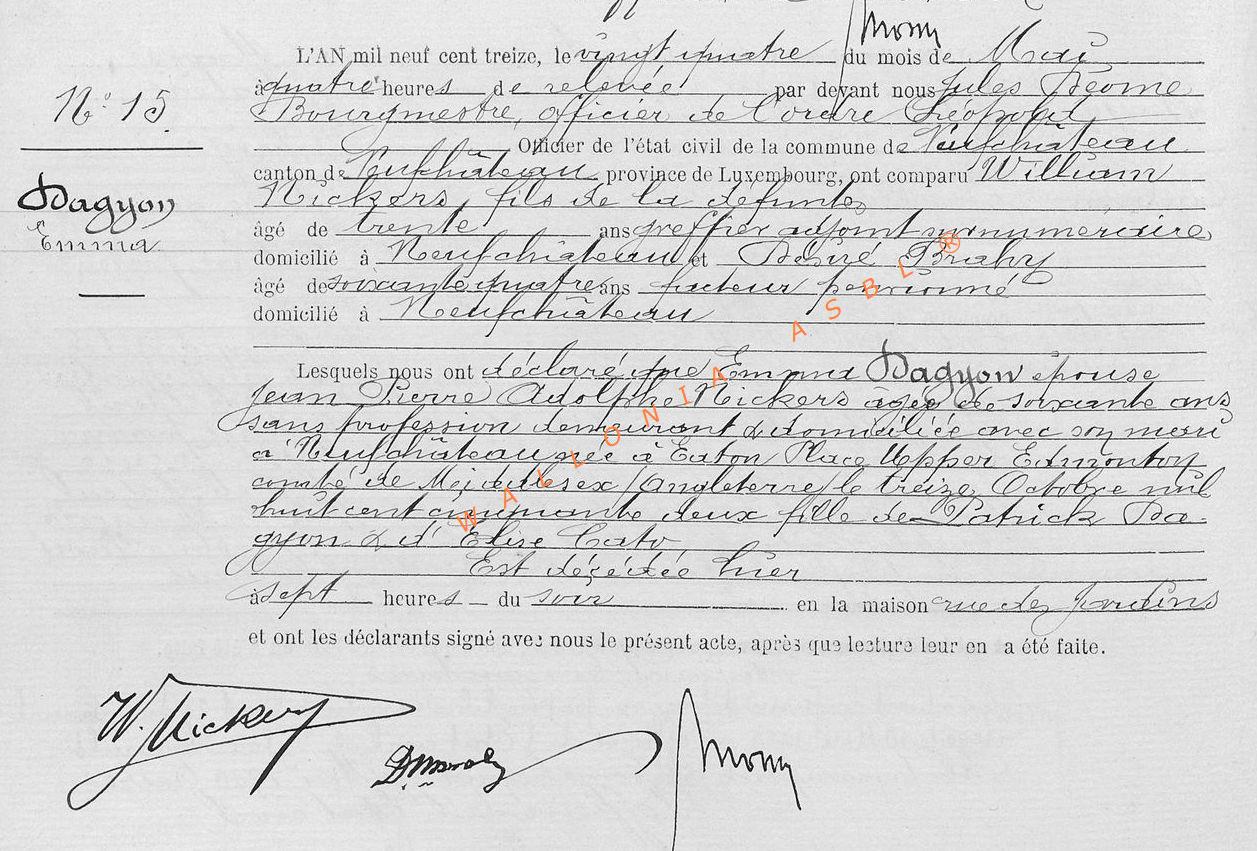 L'AN mil neuf cent treize, le vingt quatre du mois de Mai
à quatre heures de relevée par devant nous Jules
Bourgmestre, officier de l'ordre Léopold
Officier de l'état civil de la commune de Neufchâteau
canton de Neufchâteau province de Luxembourg, ont comparu William
Nickers, fils de la défunte,
âgé de trente ans greffier adjoint surnuméraire
domicilié à Neufchâteau et Désiré Brahy
âgé de soixante quatre ans facteur pensionné
domicilié à Neufchâteau
Lesquels nous ont déclaré que Emma Dagyon épouse
Jean Pierre Adolphe Nickers âgée de soixante ans
sans profession demeurant & domiciliée avec son mari
à Neufchâteau née à Eaton Place Upper Edmonton
comté de Middlesex (Angleterre) le treize Octobre mil
huit cent cinquante deux fille de Patrick Da-
gyon & d' Elise Cato
Est décédée hier
à sept heures du soir en la maison rue des
et ont les déclarants signé avec nous le présent acte, après que lecture leur en a été faite.
N° 15
Dagyon
Emma
WALLONIA ASBL ®
W. Nickers